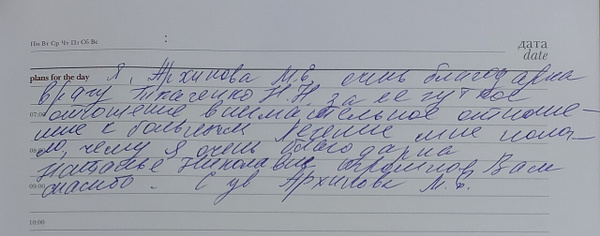 Пн Вт Ср Чт Пт Сб Вс :
дата
date
plans for the day Я, Архипова М.Б, очень благодарна
врачу Ткаченко Н.Н. за ее чуткое
07:00 отношение внимательное отноше-
ние к больным Лечение мне помог-
ло, чему я очень благодарна
Наталье Николаевне огромное Вам
09:00 спасибо. С ув Архипова М.Б.
10:00